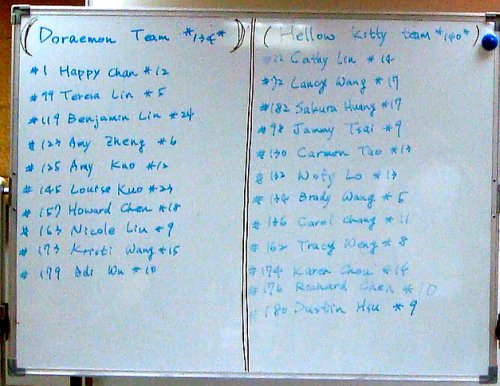 (Doraemon Team *134*)
#1 Happy Chan *12
#99 Teresa Lin *5
#119 Benjamin Lin *24
#123 Amy Zheng *6
#125 Amy Kao *12
#145 Louise Kuo *23
#157 Howard Chen *18
#163 Nicole Liu *9
#173 Kristi Wang *15
#179 Adi Wu *10
(Hellow Kitty team *140*)
Cathy Lin *14
#92 Lancy Wang *17
#182 Sakura Huang *17
#98 Jammy Tsai *9
#130 Carmon Tao *13
#132 Wofy Lo *13
#134 Brady Wang *5
#136 Carol Chang *11
#162 Tracy Weng *8
#174 Karen Chou *14
#176 Richard Chen *10
#180 Dustin Hsu *9